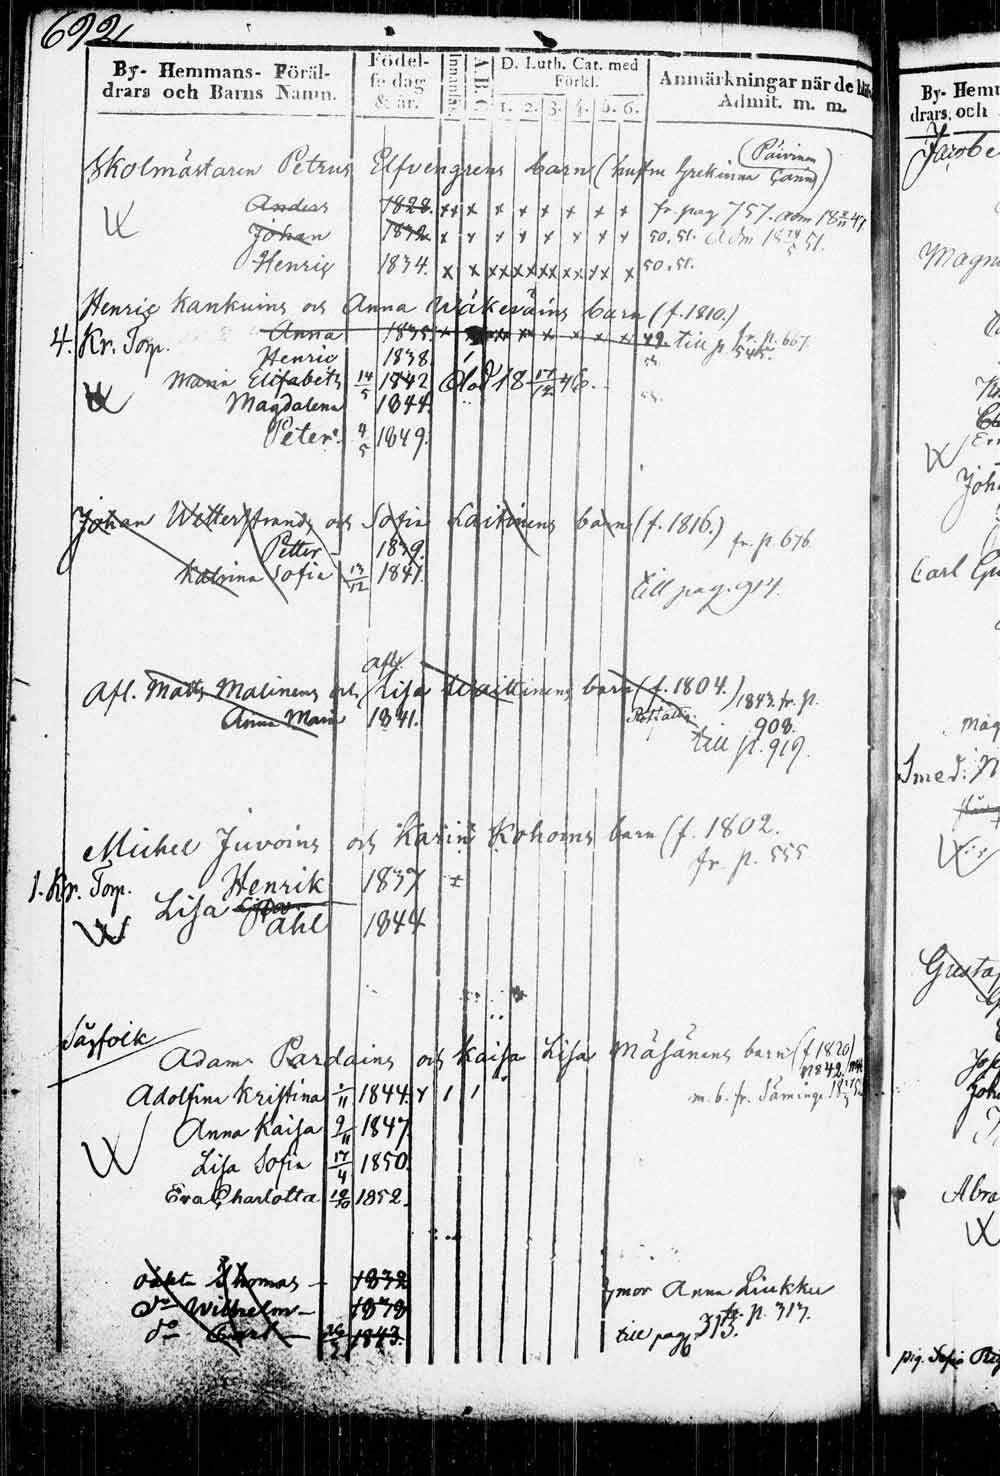 692
By- Hemmans- Föräl-
drars och Barns Namn.
Födel-
se dag
& år.
Innanläs.
A.B.C.
D. Luth. Cat. med
Förkl.
1. 2. 3. 4. 5. 6.
Anmärkningar när de
Admit. m. m.
Skolmästaren Petrus Elfvengrens barn (hustru Grekinna Päivinen
Anders 1828. x x x x x x x x x x fr. pag 757. adm 18 47
Johan 1832 x x x x x x x x x 50. 51. Adm 18 51.
Henric 1834. x x x x x x x x x x x x 50. 51.
Henric Kankuins och Anna Wäkeväins barn (f. 1810.)
4. Kr. Torp. Anna 1835. 49 till p. 545. fr. p. 667.
Henric 1838
Maria Elisabeth 14/5 1842 död 18 17/12 46.
Magdalena 1844.
Peter. 4/5 1849.
Johan Wetterstrands och Sofia Laitinens barn (f. 1816.)
fr. p. 676.
Petter 1839.
Katrina Sofia 13/12 1841.
till pag. 914.
Afl. Matts Malinens och afl. Lisa Waittinens barn (f. 1804.) 1843. fr. p. 908.
Anna Maria 1841.
till p. 919.
Michel Juvoins och Karin Kohoins barn (f. 1802.
fr. p. 555
1. Kr. Torp. Henrik 1837 x
Lisa
Påhl 1844
Sågfolk
Adam Pardains och Kaisa Lisa Mäsänens barn (f 1820)
Adolfina Kristina 1/11 1844. m. b. fr. Säminge
Anna Kaisa 9/11 1847.
Lisa Sofia 17/4 1850.
Eva Charlotta 12/10 1852.
oäkta Thomas 1832
do Wilhelm 1838
do Carl 1843.
mor Anna Liukku
fr. p. 313.
till pag 313.
By- Hem
drars, och
Jacob
Magn
Joh
Carl Gu
Smed. M
Gustaf
Jose
Joha
Abra
pig. Sofia